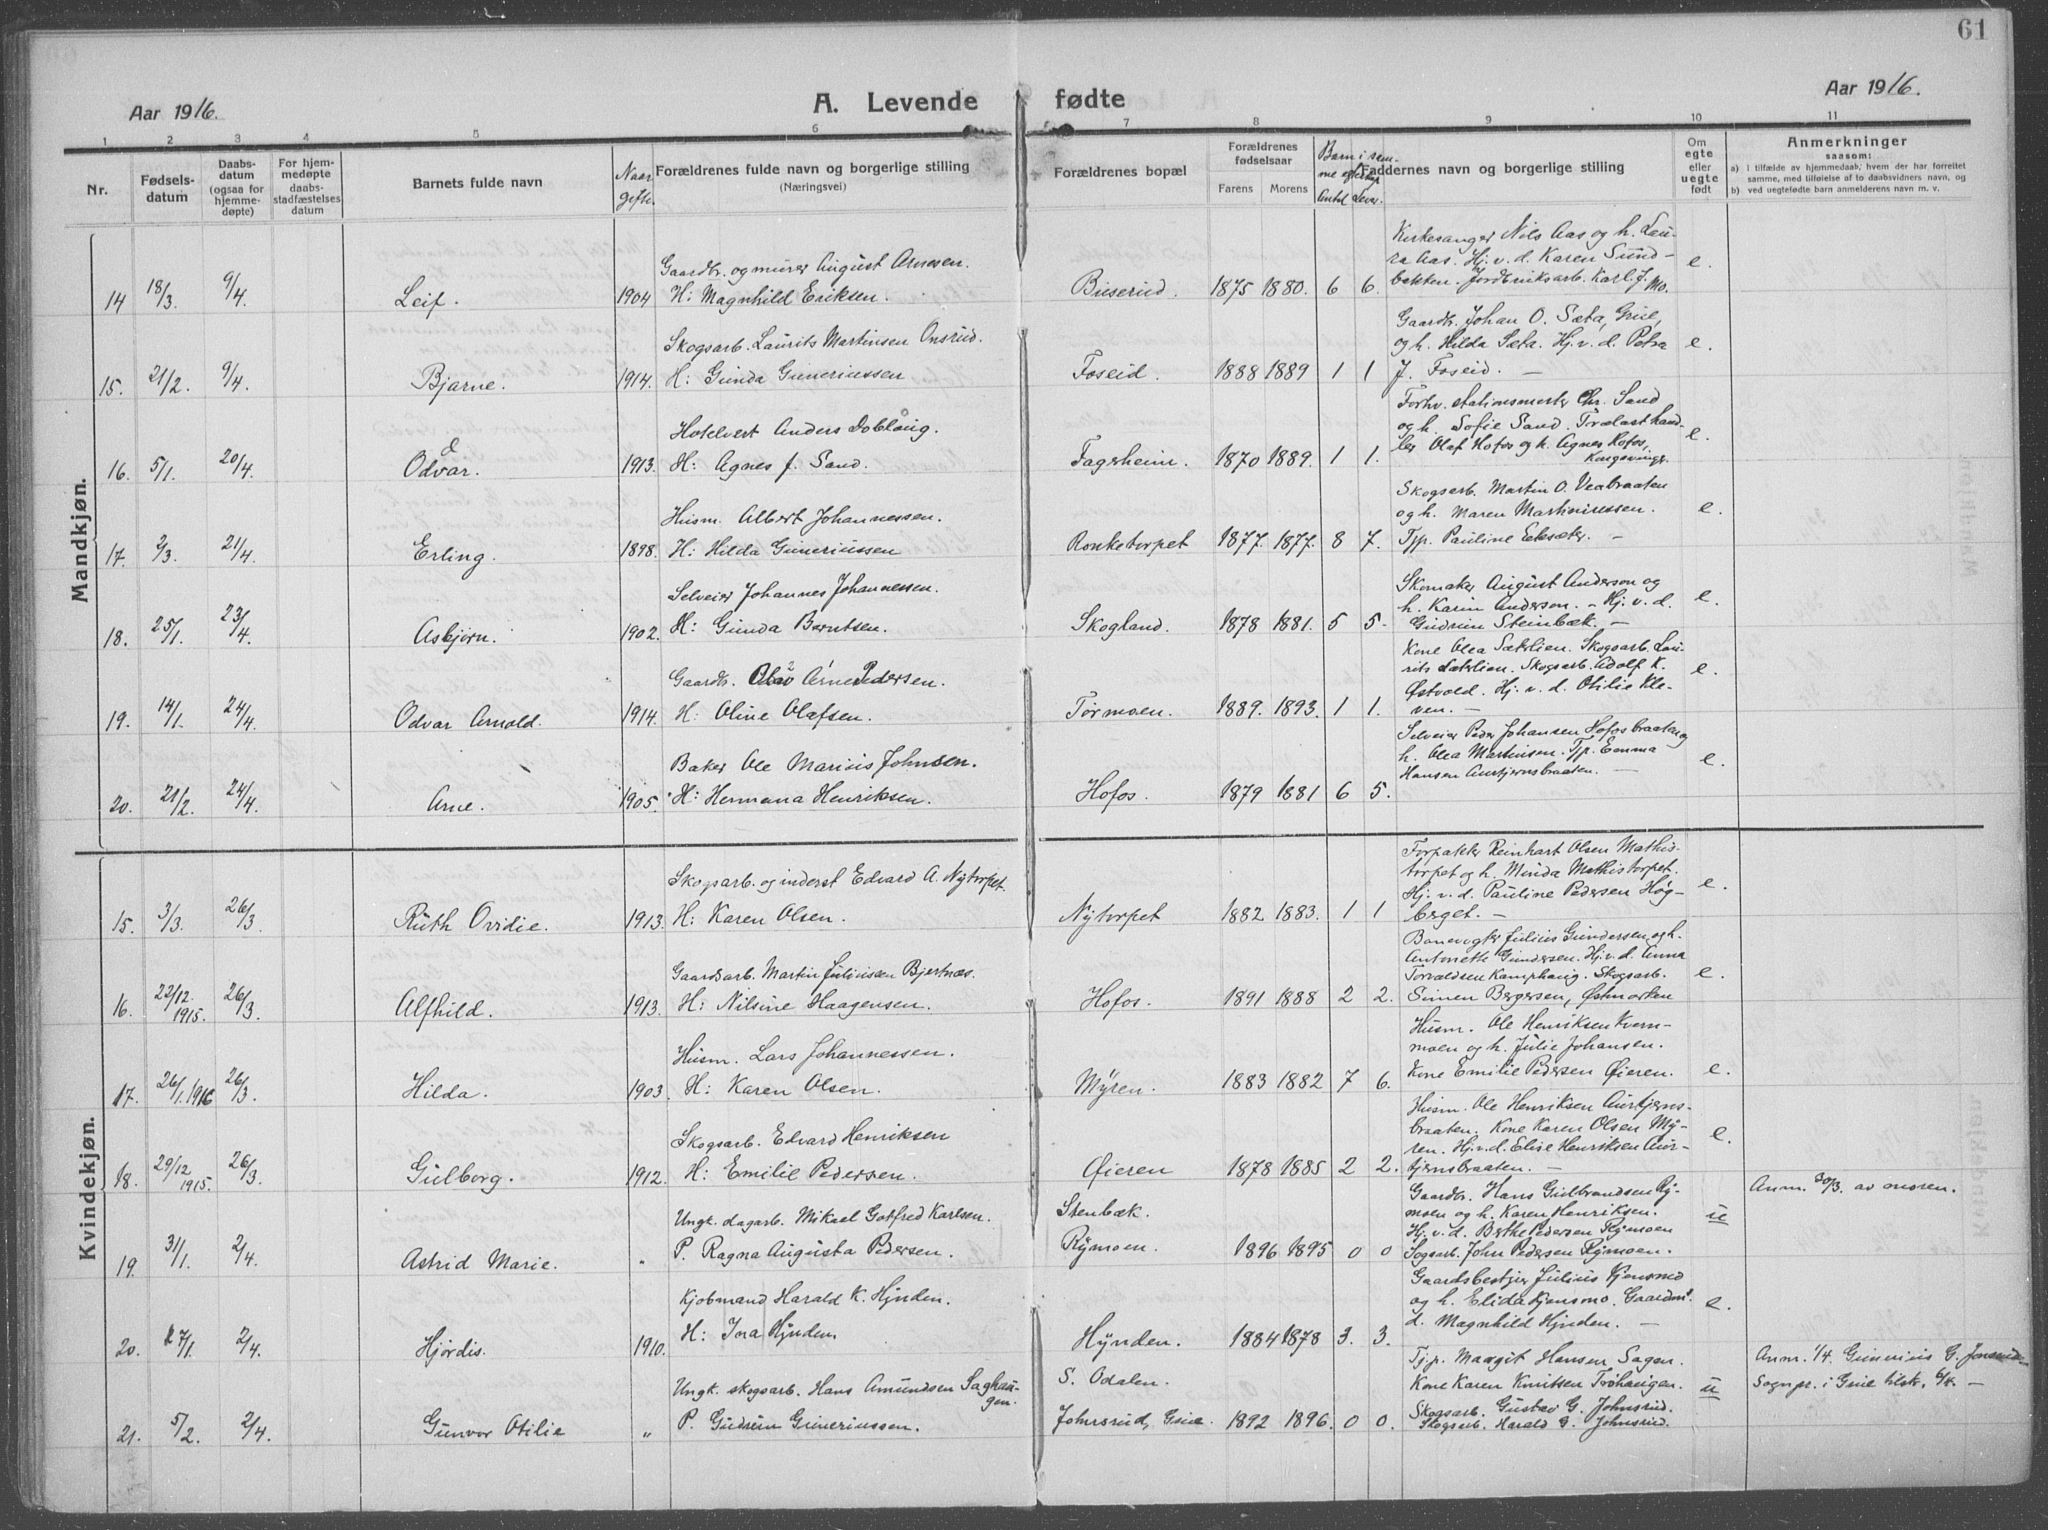 61
Aar 1916.
A. Levende fødte
Aar 1916.
1 2 3 4 5 6 7 8 9 10 11
Nr.
Fødsels-
datum
Daabs-
datum
(ogsaa for
hjemme-
døpte)
For hjem-
medøpte
daabs-
stadfæstelses
datum
Barnets fulde navn
Naar
gifte.
Forældrenes fulde navn og borgerlige stilling
(Næringsvei)
Forældrenes bopæl
Forældrenes
fødselsaar
Farens Morens
Barn i sam-
me egteskap
Antal Lever.
Faddernes navn og borgerlige stilling
Om
egte
eller
uegte
født
Anmerkninger
saasom:
a) i tilfælde av hjemmedaab, hvem der har forrettet
samme, med tilføielse af to daabsvidners navn, og
b) ved uegtefødte barn anmelderens navn m. v.
Mandkjøn.
Kirkesanger Nils Aas og h. Lau-
ra Aas. Hj. v. d. Karen Sund-
Gaardbr. og murer August Arnesen.
e.
14 18/3. 9/4. Leif. 1904 H: Magnhild Eriksen. Buserud. 1875 1880. 6 6. bakken. Jordbruksarb. Karl J. Mo.
Gaardbr. Johan O. Sæta, Grue,
Skogsarb. Laurits Martinsen Onsrud.
og h. Hilda Sæta. Hj. v. d. Petra e.
15. 21/2. 9/4. Bjarne. 1914. H: Gunda Guneriussen Foseid. 1888 1889 1 1 J. Foseid. —
Forhv. stationsmester Chr. Sand
og h. Sofie Sand. Trælasthand-
Hotelvert Anders Dobloug.
e.
ler Olaf Hofos og h. Agnes Hofos,
Kongsvinger.
16. 5/1. 20/4. Odvar. 1913. H: Agnes f. Sand. Fagerheim. 1870 1889. 1 1.
Skogsarb. Martin O. Vea­braaten
og h. Maren Martinussen. e.
Husm. Albert Johannessen.
17. 2/3. 21/4. Erling. 1898. H: Hilda Guneriussen Ronketorpet 1877. 1877. 8 7. Tjp. Pauline Eeksæter. —
Skomaker August Anderson og
Selveier Johannes Johannessen.
h. Karin Anderson. – Hj. v. d. e.
18. 25/1. 23/4. Asbjørn. 1902. H: Gunda Berntsen. Skogland. 1878 1881. 5 5. Gudrun Steinbæk. —
Kone Olea Sæterlien. Skogsarb. Lau-
rits Sæterlien. Skogsarb. Adolf K. e.
Gaardbr. Olav Arne Pedersen.
Østvold. Hj. v. d. Otilie Kle-
19. 14/1. 24/4. Odvar Arnold. 1914. H: Oline Olafsen. Tørmoen. 1889. 1893. 1 1. ven. —
Selveier Peder Johansen Hofosbraaten og
h. Olea Martinsen. Tjp. Emma e.
Baker Ole Marius Johnsen.
Hansen Aurtjernsbraaten. —
20. 21/2. 24/4. Arne. 1905. H: Hermana Henriksen. Hofos. 1879 1881 6 5.
Kvindekjøn.
Forpakter Reinhart Olsen Mathis-
torpet og h. Minda Mathistorpet.
Skogsarb. og inderst Edvard A. Nytorpet.
Hj. v. d. Pauline Pedersen Høg- e.
15. 3/3. 26/3. Ruth Ovidie. 1913. H: Karen Olsen. Nytorpet 1882 1883. 1 1 berget. —
Banevogter Julius Gundersen og h.
Antonette Gundersen. Hj. v. d. Anna
Gaardsarb. Martin Juliussen Bjertnæs.
Torvaldsen Kamphaug. Skogsarb. e.
16. 22/12. 1915. 26/3. Alfhild. 1913. H: Nilsine Haagensen. Hofos. 1891 1888 2 2. Simen Bergersen, Østmarken
Husm. Ole Henriksen Kvern-
moen og h. Julie Johansen.
Husm. Lars Johannessen.
17. 26/1. 1916 26/3. Hilda. 1903. H: Karen Olsen. Mýren. 1883 1882 7 6. Kone Emilie Pedersen Øieren. e.
Husm. Ole Henriksen Aurtjerns-
braaten. Kone Karen Olsen My- e.
Skogsarb. Edvard Henriksen
ren. Hj. v. d. Elise Henriksen Aur-
18. 29/12 1915. 26/3. Gulborg. 1912. H: Emilie Pedersen. Øieren 1878 1885 2 2. tjernsbraaten. —
Gaardbr. Hans Gulbrandsen Ry-
moen og h. Karen Henriksen. u
Anm. 30/3. av moren.
Ungk. dagarb. Mikael Gotfred Karlsen. Stenbæk.
Hj. v. d. Berthe Pedersen Rymoen
19. 31/1. 2/4. Astrid Marie. " P. Ragna Augusta Pedersen. Rymoen. 1896 1895 0 0 Sogsarb. John Pedersen Rymoen.
Gaardsbestyr Julius Kjensmo
og h. Elida Kjensmo. Gaardm. e.
Kjøbmand Harald K. Hynden.
d. Magnhild Hynden. —
20. 27/1. 2/4. Hjørdis. 1910. H: Inra Hynden. Hynden. 1884 1878 3. 3.
Tjp. Margit Hansen Sagen.
Kone Karen Knutsen Trøhaugen. u
Anm. 1/4. Gunerius G. Jonsrud
Sogn pr. i Grue tilsk. 6/4. —
Ungk. skogsarb. Hans Amundsen Saghau-
gen. S. Odalen.
Skogsarb. Gustav G. Johnsrud.
21. 5/2. 2/4. Gunvor Otilie " P. Gudrun Guneriussen. Johnsrud, Grue. 1892 1896. 0 0. Skogsarb. Harald G. Johnsrud.